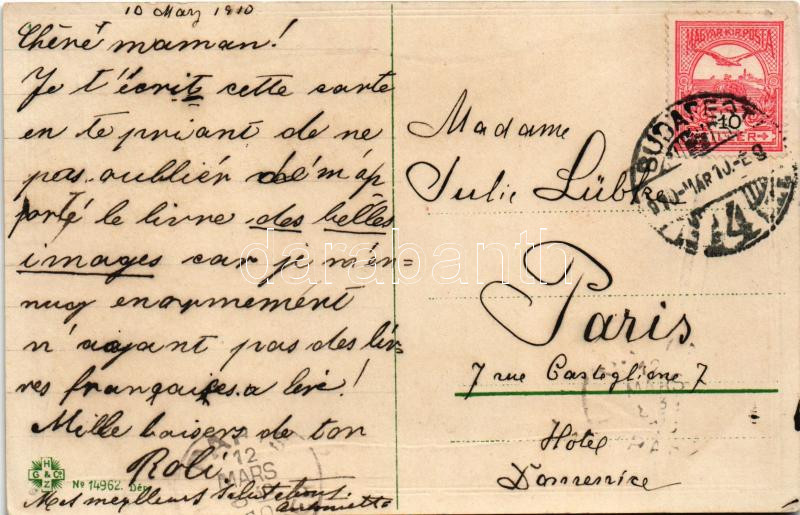 10 Marz 1910
Chère maman!
Je t'écrit cette carte
en te priant de ne
pas oublier de m'ap-
porté le livre des belles
images car je m'en-
nuy enormement
n'ayant pas des liv-
res françaises a lire!
Mille baisers de ton
Roli.
Mes meilleurs salutations
Antoinette
HGZ & Co
No 14962. Dép.
Madame
Julie Lübke
Paris
7 rue Castiglione 7
Hôtel
Domenice
MAGYAR KIR. POSTA
10
FILLÉR
BUDAPEST
910 MÁR 10. E8
4
12
MARS
12
MARS
darabanth